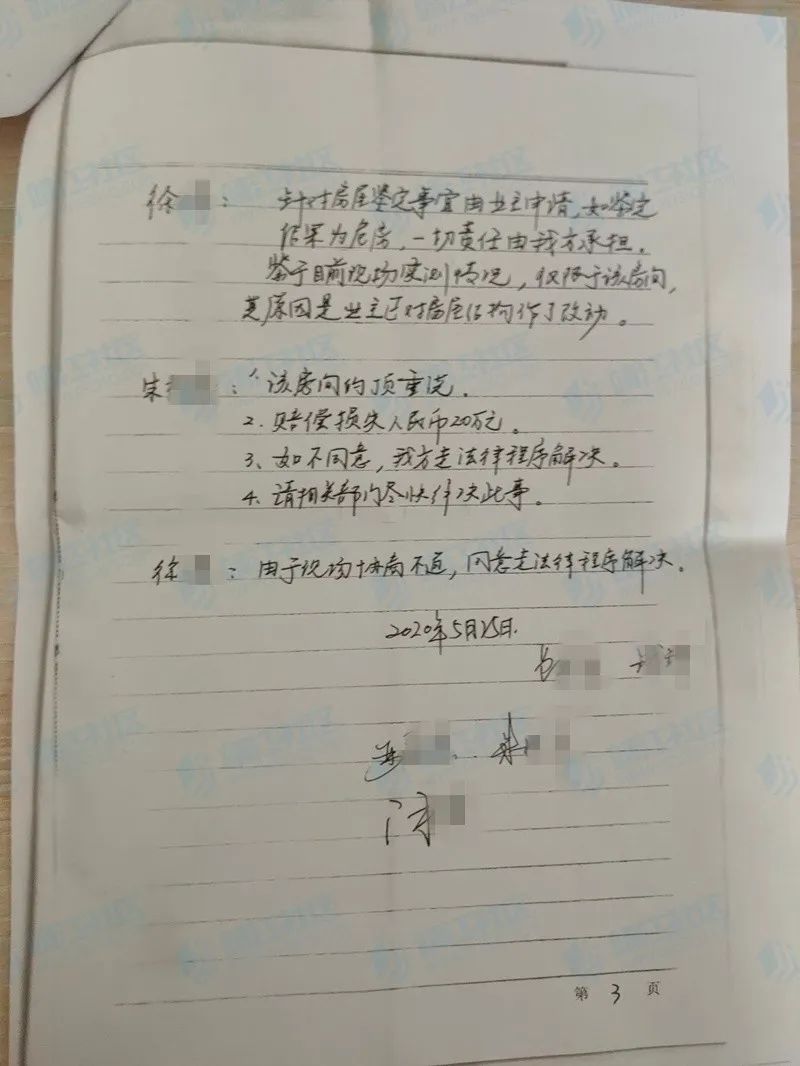 徐 : 针对房屋鉴定事宜由业主申请,如鉴定
结果为危房,一切责任由我方承担.
鉴于目前现场实测情况,仅限于该房间,
其原因是业主已对房屋结构作了改动。
宋 : 1、该房间的顶重浇.
2. 赔偿损失人民币20万元。
3、如不同意,我方走法律程序解决。
4. 请相关部门尽快解决此事。
徐 : 由于现场协商不通,同意走法律程序解决.
2020年5月25日.
第 3 页